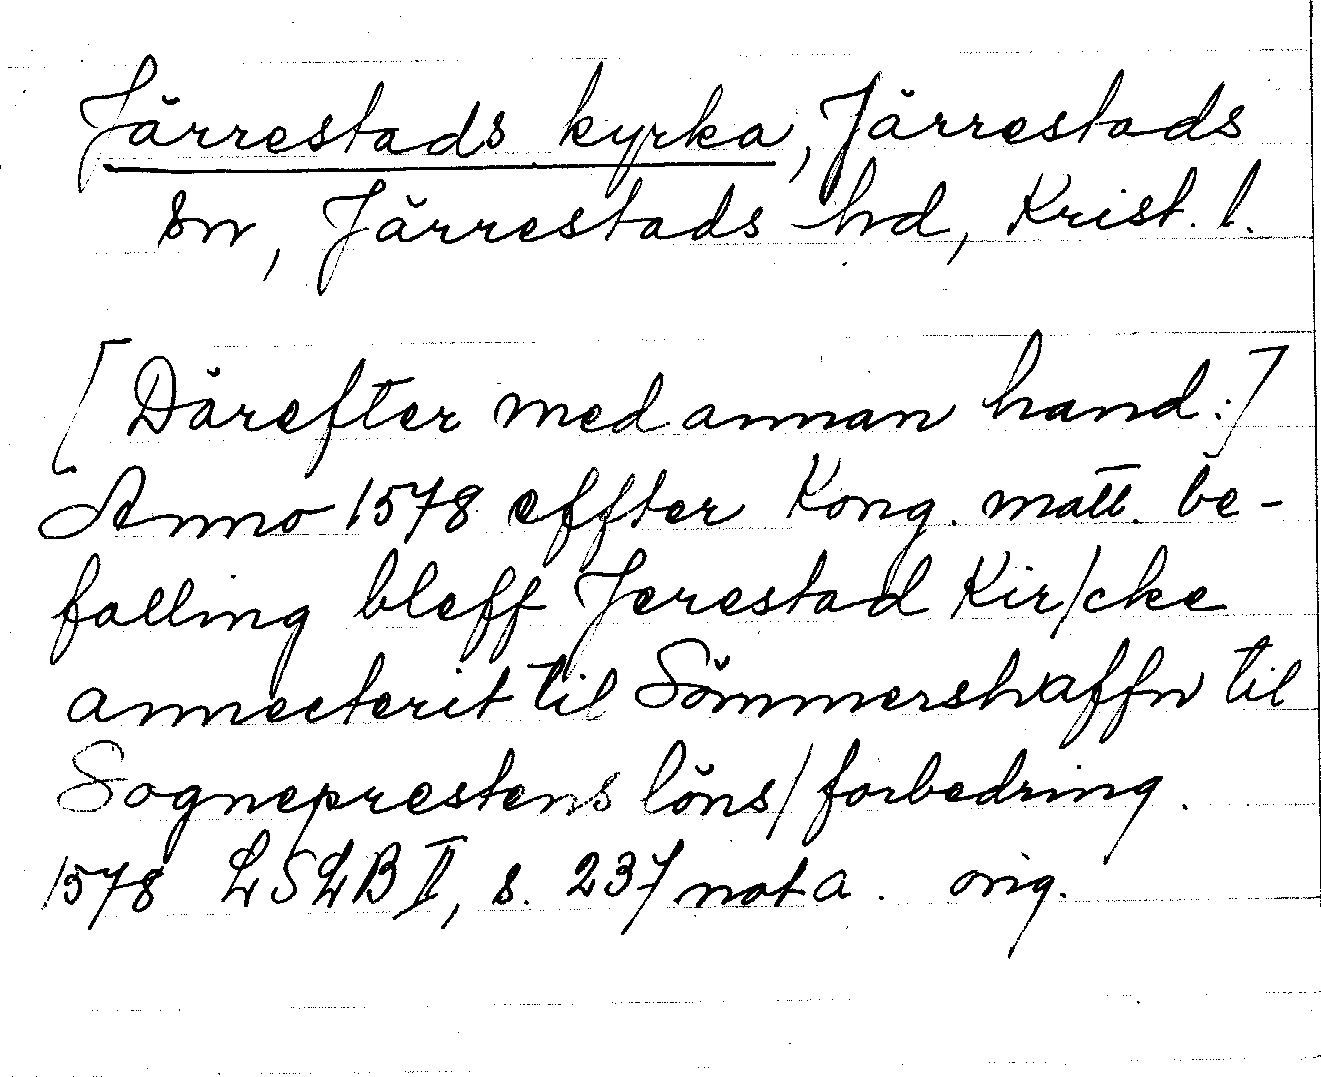 Järrestads kyrka, Järrestads
sn, Järrestads hd, Krist. l.
[Därefter med annan hand:]
Anno 1578 effter Kong. matt. be-
falling bleff Jerestad Kir/cke
annecterit til Sömmershaffn til
Sogneprestens löns/forbedring.
1578 LSLB II, s. 237 not a. orig.